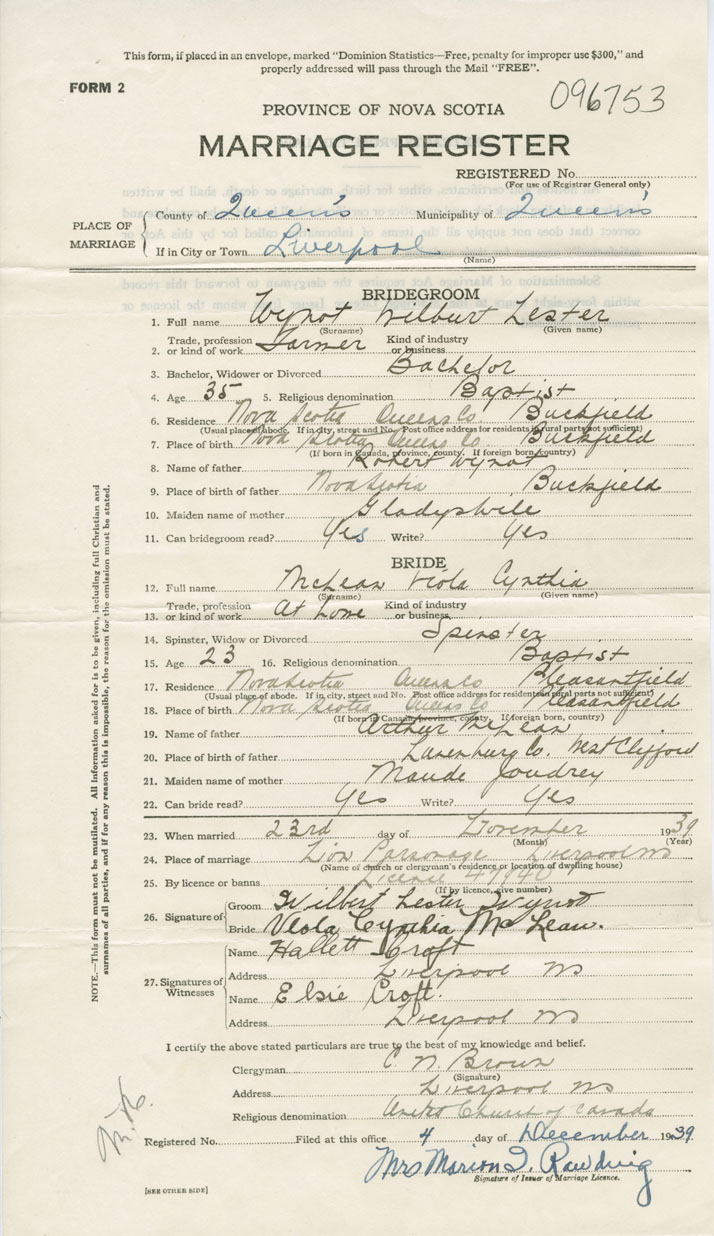 This form, if placed in an envelope, marked "Dominion Statistics—Free, penalty for improper use $300," and
properly addressed will pass through the Mail "FREE".
FORM 2
096753
PROVINCE OF NOVA SCOTIA
MARRIAGE REGISTER
REGISTERED No.
(For use of Registrar General only)
PLACE OF MARRIAGE
County of Queen's Municipality of Queen's
If in City or Town Liverpool
(Name)
BRIDEGROOM
1. Full name Wynot Wilburt Lester
(Surname) (Given name)
2. Trade, profession or kind of work Farmer Kind of industry or business
3. Bachelor, Widower or Divorced Bachelor
4. Age 35 5. Religious denomination Baptist
6. Residence Nova Scotia Queens Co Buckfield
(Usual place of abode. If in city, street and No. Post office address for residents in rural parts not sufficient)
7. Place of birth Nova Scotia Queens Co Buckfield
(If born in Canada, province, county. If foreign born, country)
8. Name of father Robert Wynot
9. Place of birth of father Nova Scotia Buckfield
10. Maiden name of mother Gladys Wile
11. Can bridegroom read? Yes Write? Yes
BRIDE
12. Full name McLean Viola Cynthia
(Surname) (Given name)
13. Trade, profession or kind of work At home Kind of industry or business
14. Spinster, Widow or Divorced Spinster
15. Age 23 16. Religious denomination Baptist
17. Residence Nova Scotia Queens Co Pleasantfield
(Usual place of abode. If in city, street and No. Post office address for residents in rural parts not sufficient)
18. Place of birth Nova Scotia Queens Co Pleasantfield
(If born in Canada, province, county. If foreign born, country)
19. Name of father Arthur McLean
20. Place of birth of father Lunenburg Co. West Clifford
21. Maiden name of mother Maude Joudrey
22. Can bride read? Yes Write? Yes
23. When married 23rd day of November 1939
(Month) (Year)
24. Place of marriage Zion Parsonage Liverpool NS
(Name of church or clergyman's residence or location of dwelling house)
25. By licence or banns Licence
(If by licence, give number)
26. Signature of
Groom Wilbert Lester Wynot
Bride Viola Cynthia McLean.
27. Signatures of Witnesses
Name Hallett Croft
Address Liverpool NS
Name Elsie Croft.
Address Liverpool NS
I certify the above stated particulars are true to the best of my knowledge and belief.
Clergyman C. N. Brown
(Signature)
Address Liverpool NS
Religious denomination United Church of Canada
Registered No. Filed at this office 4 day of December 1939
Mrs Marion I. Rawding
Signature of Issuer of Marriage Licence.
[SEE OTHER SIDE]
NOTE.—This form must not be mutilated. All information asked for is to be given, including full Christian and
surnames of all parties, and if for any reason this is impossible, the reason for the omission must be stated.